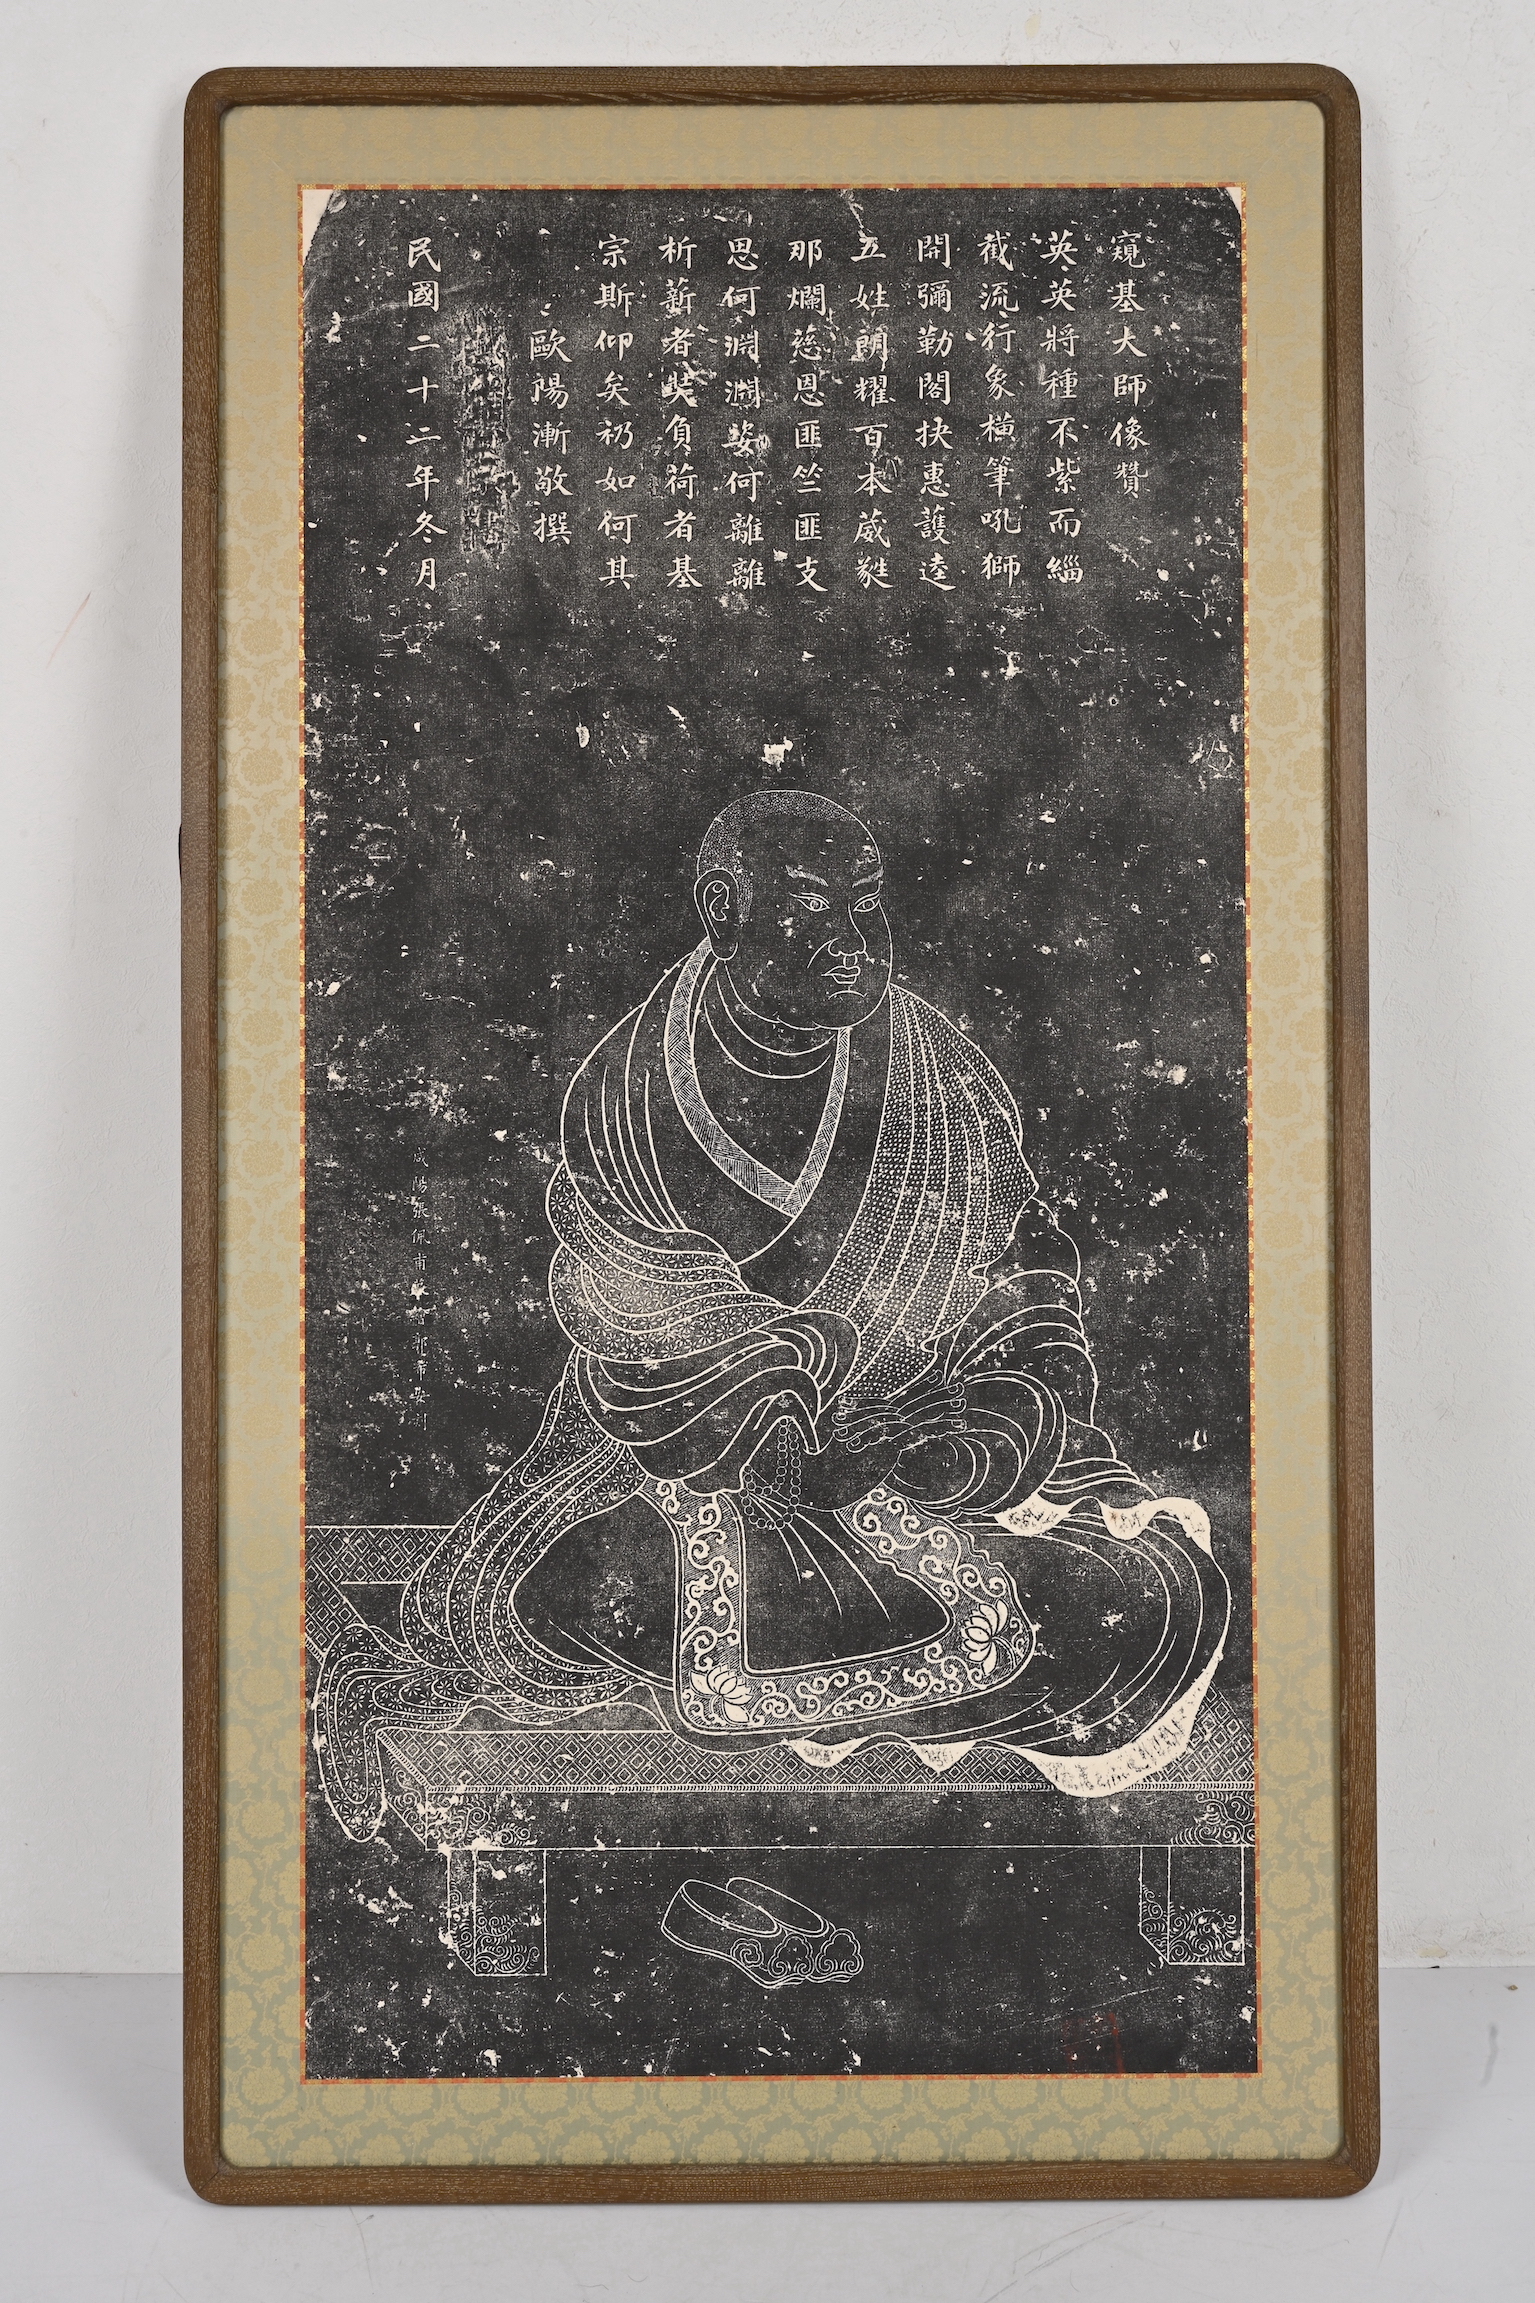 窺基大師像贊
英英將種不紫而緇
截流行象橫筆吼獅
開彌勒閣抉惠護逵
五姓朗耀百本葳蕤
那爛慈恩匪竺匪支
思何淵淵姿何離離
析薪者奘負荷者基
宗斯仰矣礽如何其
歐陽漸敬撰
民國二十二年冬月
咸陽張佩甫